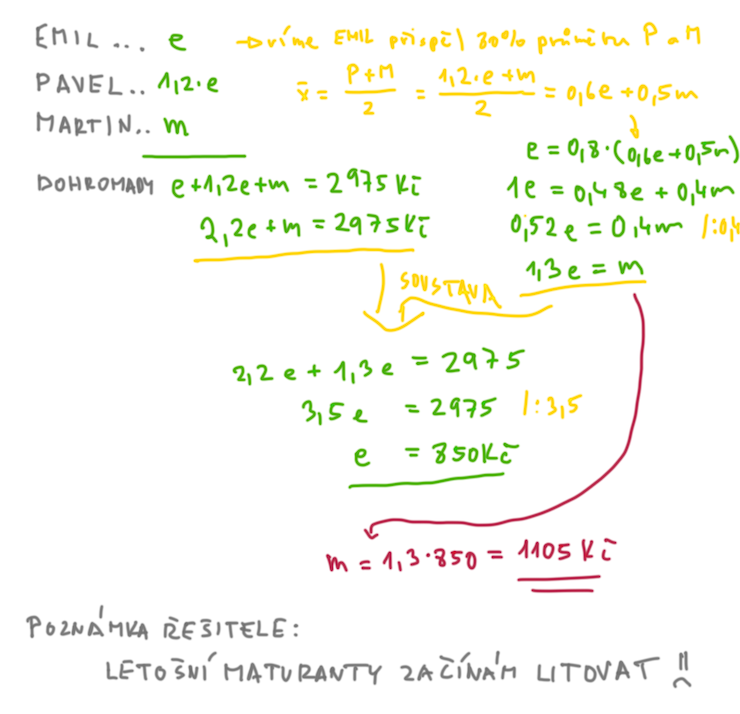 EMIL ... e → víme EMIL přispěl 80% průměru P a M
PAVEL.. 1,2·e x̄ = P+M/2 = 1,2·e+m/2 = 0,6e+0,5m
MARTIN.. m
e = 0,8·(0,6e+0,5m)
DOHROMADY e+1,2e+m = 2975 Kč 1e = 0,48e + 0,4m
2,2e+m = 2975Kč 0,52e = 0,4m /:0,4
1,3e = m
SOUSTAVA
2,2e + 1,3e = 2975
3,5e = 2975 /:3,5
e = 850Kč
m = 1,3·850 = 1105 Kč
POZNÁMKA ŘEŠITELE:
LETOŠNÍ MATURANTY ZAČÍNÁM LITOVAT !!